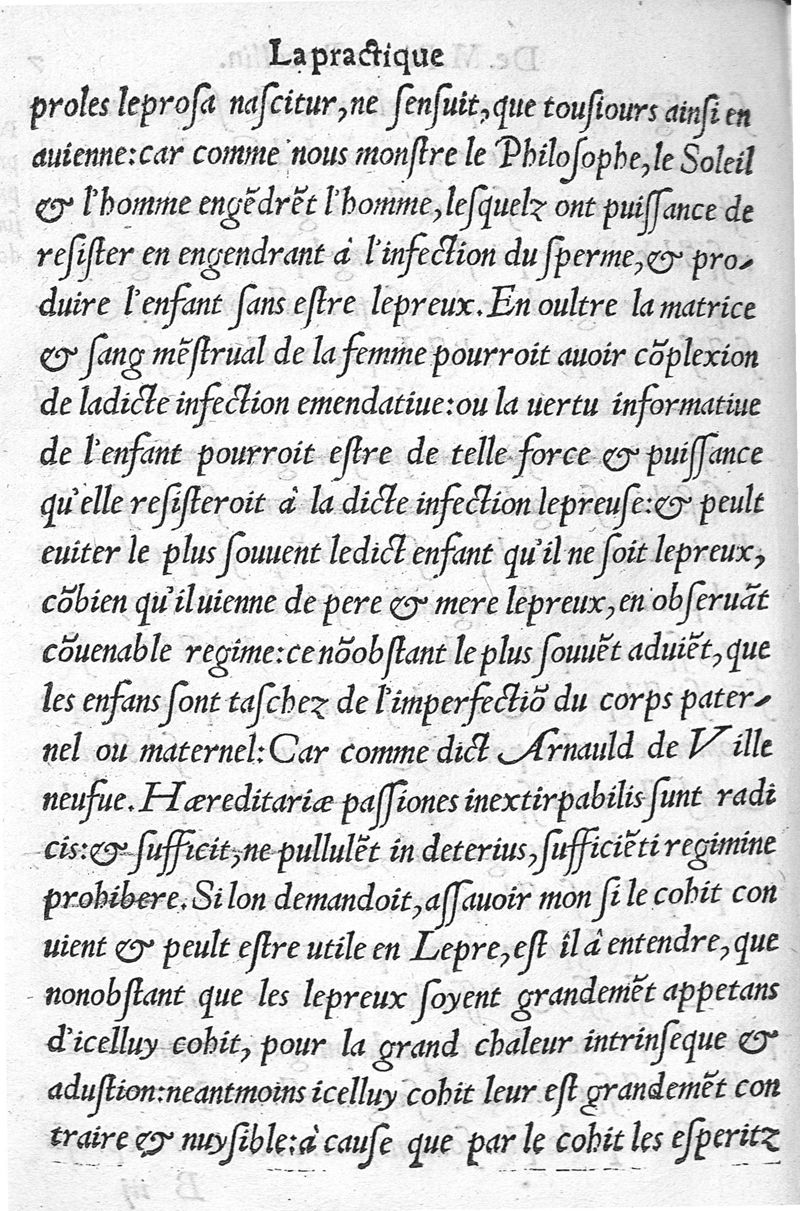 La practique
proles leprosa nascitur, ne sensuit, que tousiours ainsi en
auienne: car comme nous monstre le Philosophe, le Soleil
& l'homme engẽdrẽt l'homme, lesquelz ont puissance de
resister en engendrant à l'infection du sperme, & pro-
duire l'enfant sans estre lepreux. En oultre la matrice
& sang mẽstrual de la femme pourroit auoir cõplexion
de ladicte infection emendatiue: ou la uertu informatiue
de l'enfant pourroit estre de telle force & puissance
qu'elle resisteroit à la dicte infection lepreuse: & peult
euiter le plus souuent ledict enfant qu'il ne soit lepreux,
cõbien qu'il uienne de pere & mere lepreux, en obseruãt
cõuenable regime: ce nõobstant le plus souuẽt aduiẽt, que
les enfans sont taschez de l'imperfectiõ du corps pater-
nel ou maternel: Car comme dict Arnauld de Ville
neufue. Hæreditariæ passiones inextirpabilis sunt radi
cis: & sufficit, ne pullulẽt in deterius, sufficiẽti regimine
prohibere. Si lon demandoit, assauoir mon si le cohit con
uient & peult estre utile en Lepre, est il à entendre, que
nonobstant que les lepreux soyent grandemẽt appetans
d'icelluy cohit, pour la grand chaleur intrinseque &
adustion: neantmoins icelluy cohit leur est grandemẽt con
traire & nuysible: à cause que par le cohit les esperitz